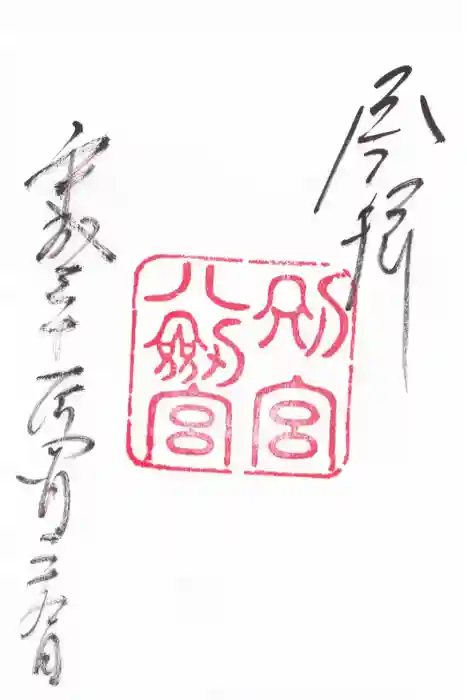 参拝
別宮
八剣宮
平成三十一年四月二九日